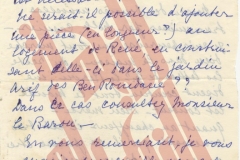 ne serait-il possible d'ajouter
une pièce (en longueur?) au
logement de René, en construi
sant celle-ci dans le jardin
Arif des Ben Romdane??
Dans ce cas consulter Monsieur
le Baron.
En vous remerciant, je vous